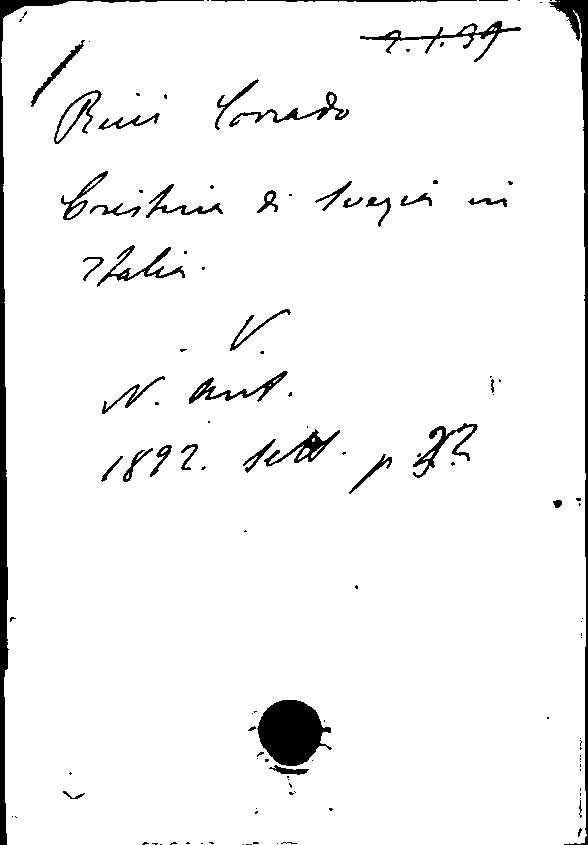 2.1.39
Ricci Corrado
Cristina di Svezia in
Italia.
V.
N. Ant.
1892. Sett. p